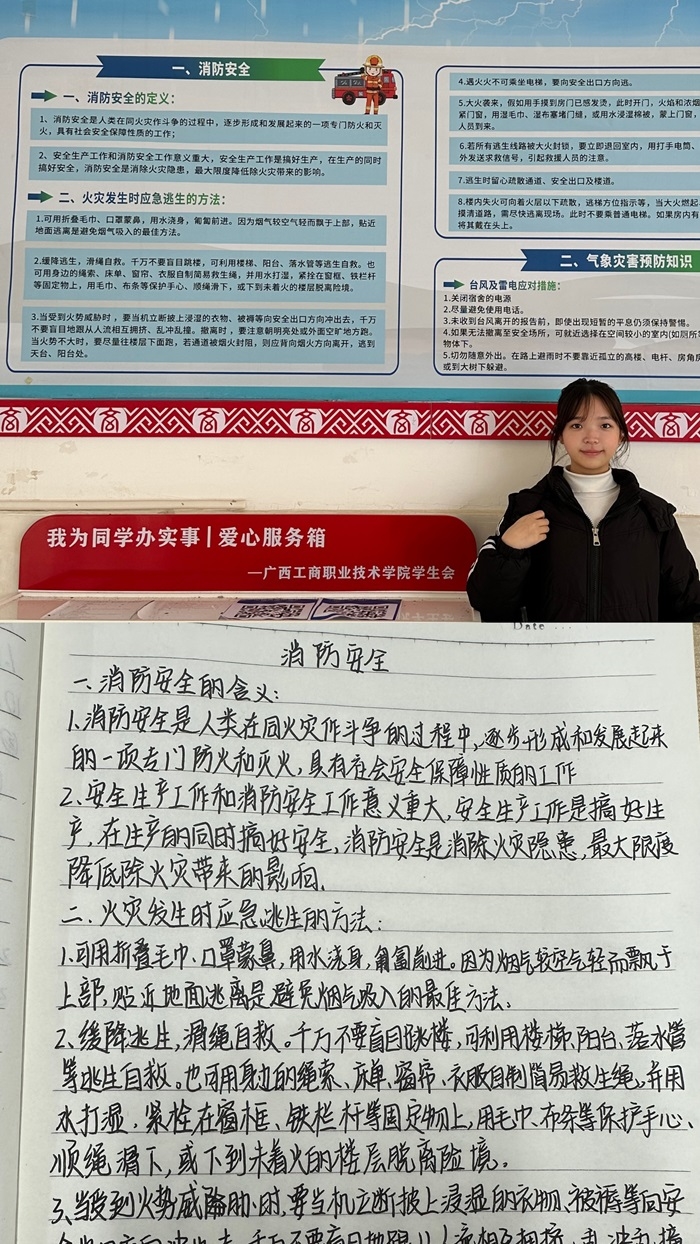 一、消防安全
一、消防安全的定义：
1、消防安全是人类在同火灾作斗争的过程中，逐步形成和发展起来的一项专门防火和灭
火，具有社会安全保障性质的工作；
2、安全生产工作和消防安全工作意义重大，安全生产工作是搞好生产，在生产的同时
搞好安全，消防安全是消除火灾隐患，最大限度降低除火灾带来的影响。
二、火灾发生时应急逃生的方法：
1.可用折叠毛巾、口罩蒙鼻，用水浇身，匍匐前进。因为烟气较空气轻而飘于上部，贴近
地面逃离是避免烟气吸入的最佳方法。
2.缓降逃生，滑绳自救。千万不要盲目跳楼，可利用楼梯、阳台、落水管等逃生自救。也
可用身边的绳索、床单、窗帘、衣服自制简易救生绳，并用水打湿，紧拴在窗框、铁栏杆
等固定物上，用毛巾、布条等保护手心、顺绳滑下，或下到未着火的楼层脱离险境。
3.当受到火势威胁时，要当机立断披上浸湿的衣物、被褥等向安全出口方向冲出去，千万
不要盲目地跟从人流相互拥挤、乱冲乱撞。撤离时，要注意朝明亮处或外面空旷地方跑。
当火势不大时，要尽量往楼层下面跑，若通道被烟火封阻，则应背向烟火方向离开，逃到
天台、阳台处。
4.遇火火不可乘坐电梯，要向安全出口方向逃。
5.大火袭来，假如用手摸到房门已感发烫，此时开门，火焰和浓烟
紧门窗，用湿毛巾、湿布塞堵门缝，或用水浸湿棉被，蒙上门窗，
人员到来。
6.若所有逃生线路被大火封锁，要立即退回室内，用打手电筒、
外发送求救信号，引起救援人员的注意。
7.逃生时留心疏散通道、安全出口及楼道。
8.楼内失火可向着火层以下疏散，逃梯方位指示等，当大火燃起
摸清道路，需尽快逃离现场。此时不要乘普通电梯。如果房内有
将其戴在头上。
二、气象灾害预防知识
台风及雷电应对措施：
1.关闭宿舍的电源
2.尽量避免使用电话。
3.未收到台风离开的报告前，即使出现短暂的平息仍须保持警惕。
4.如果无法撤离至安全场所，可就近选择在空间较小的室内(如厕所
物体下。
5.切勿随意外出。在路上避雨时不要靠近孤立的高楼、电杆、房角房
或到大树下躲避。
我为同学办实事|爱心服务箱
—广西工商职业技术学院学生会
Date
消防安全
一、消防安全的含义：
1.消防安全是人类在同火灾作斗争的过程中，逐步形成和发展起来
的一项专门防火和灭火，具有社会安全保障性质的工作
2、安全生产工作和消防安全工作意义重大，安全生产工作是搞好生
产，在生产的同时搞好安全，消防安全是消除火灾隐患，最大限度
降低除火灾带来的影响。
二、火灾发生时应急逃生的方法：
1.可用折叠毛巾、口罩蒙鼻，用水浇身，匍匐前进。因为烟气较空气轻而飘于
上部，贴近地面逃离是避免烟气吸入的最佳方法。
2、缓降逃生，滑绳自救。千万不要盲目跳楼，可利用楼梯、阳台、落水管
等逃生自救。也可用身边的绳索、床单、窗帘、衣服自制简易救生绳，并用
水打湿，紧拴在窗框、铁栏杆等固定物上，用毛巾、布条等保护手心、
顺绳滑下，或下到未着火的楼层脱离险境。
3、当受到火势威胁时，要当机立断披上浸湿的衣物、被褥等向安